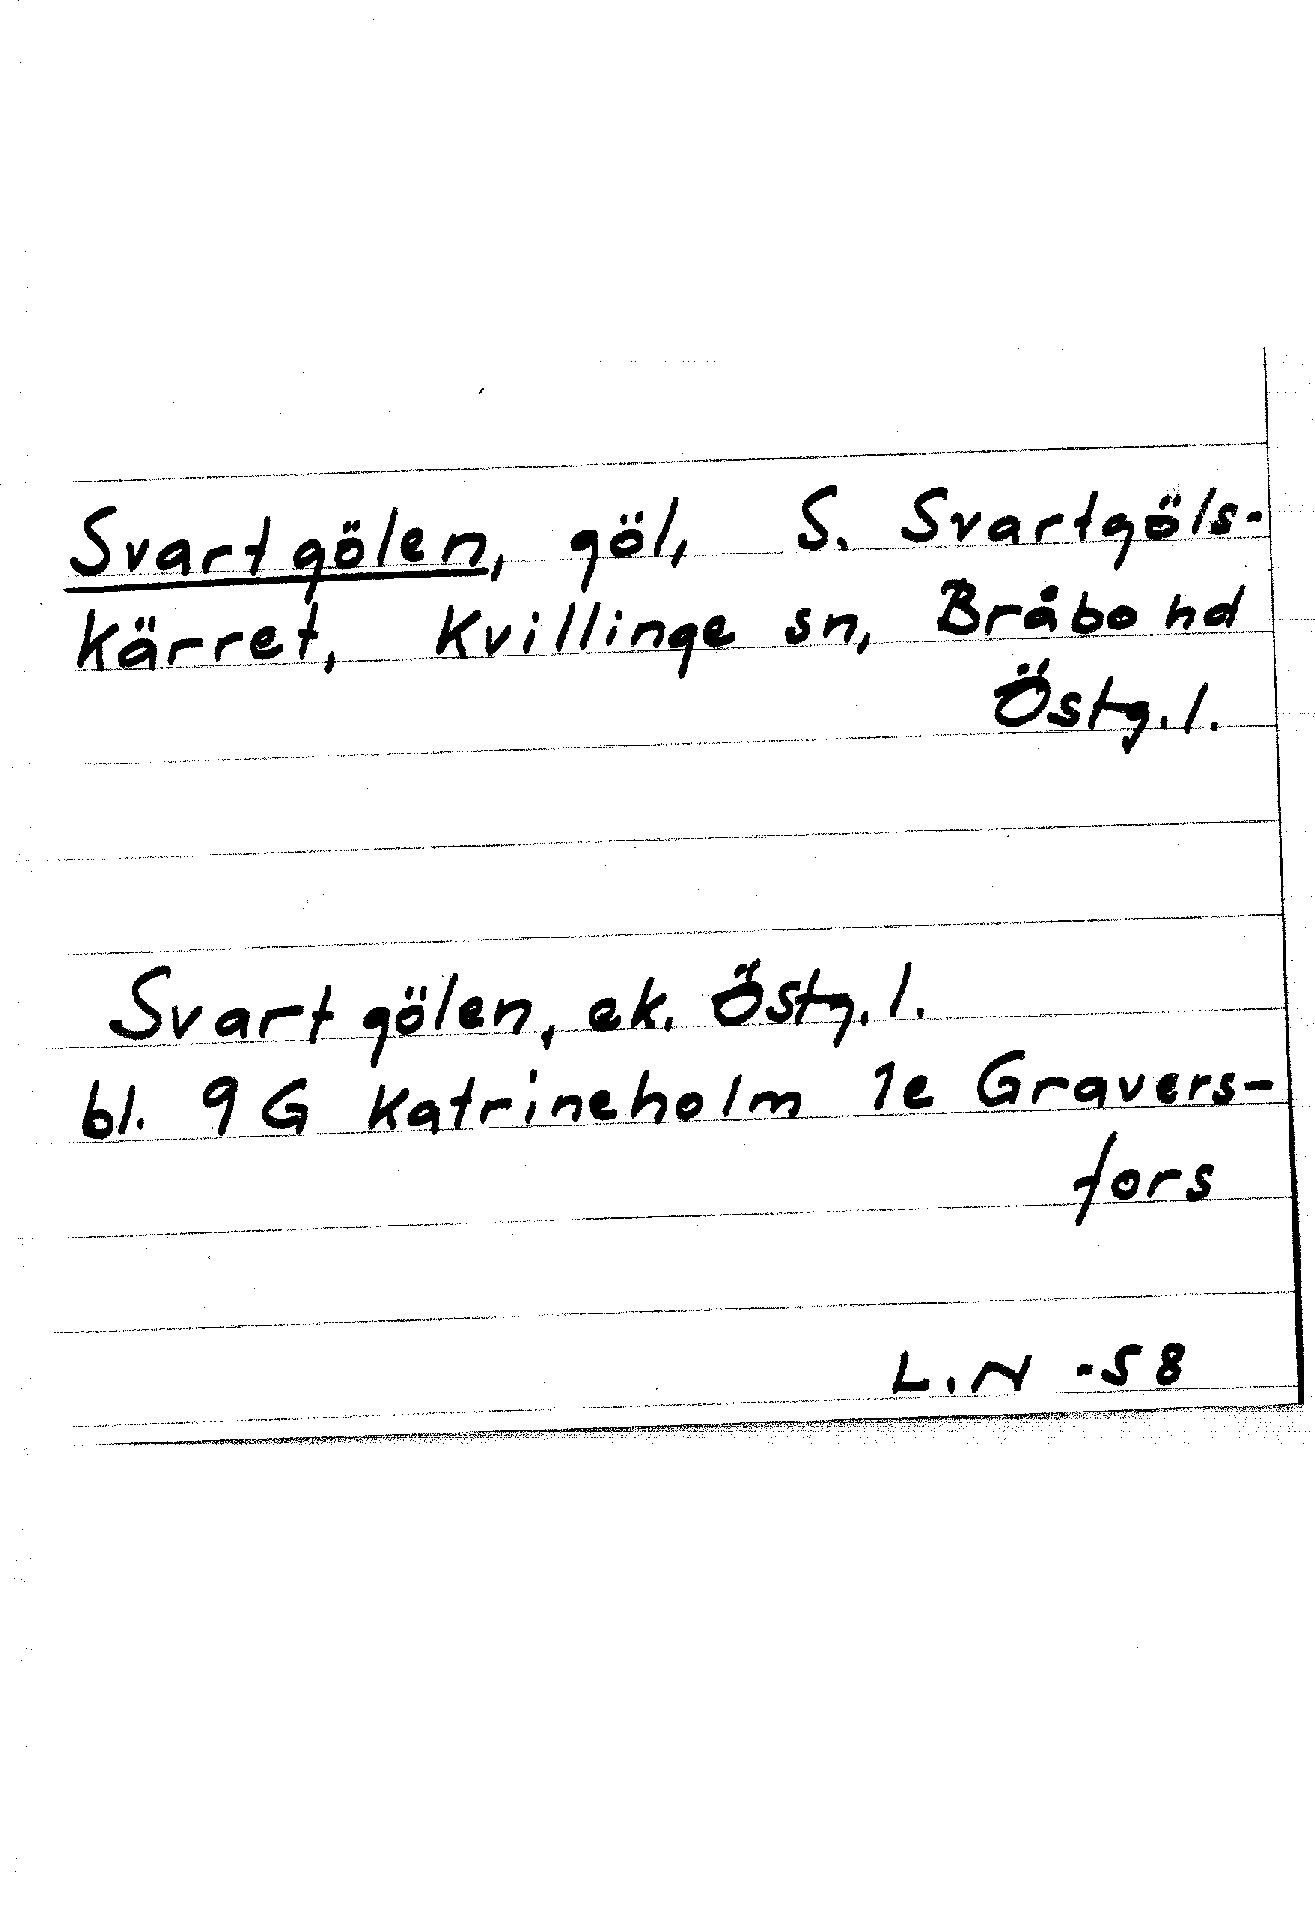 Svartgölen, göl, S. Svartgöls-
kärret, Kvillinge sn, Bråbo hd
Östg.l.
Svartgölen, ek. Östg.l.
bl. 9G Katrineholm 1e Gravers-
fors
L.N -58